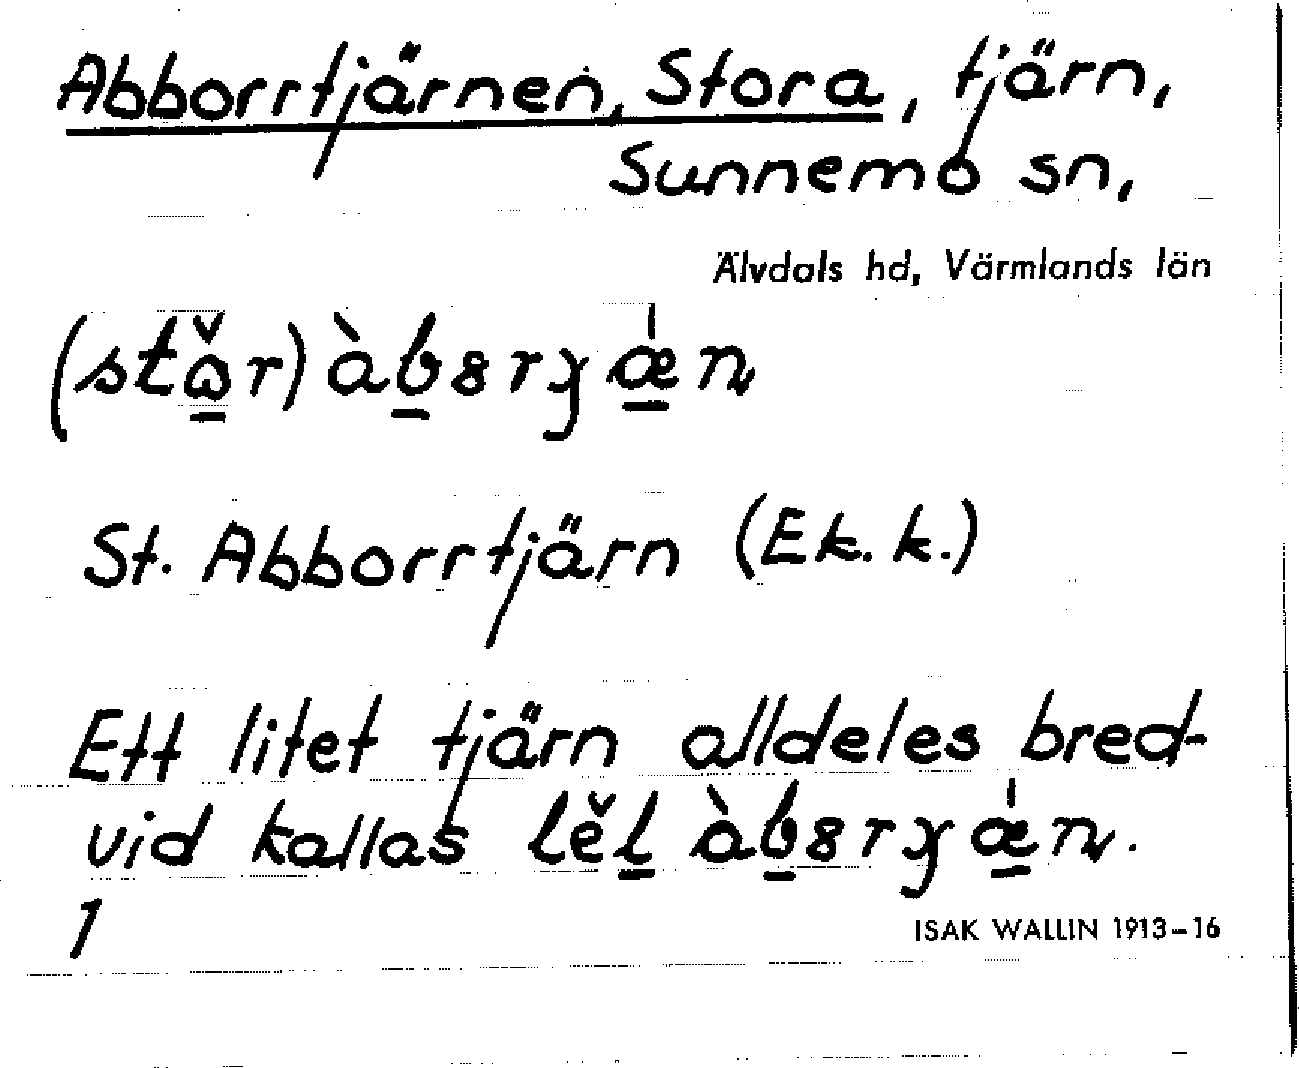 Abborrtjärnen, Stora, tjärn,
Sunnemo sn,
Älvdals hd, Värmlands län
St. Abborrtjärn (Ek. k.)
Ett litet tjärn alldeles bred-
vid kallas
1
ISAK WALLIN 1913-16